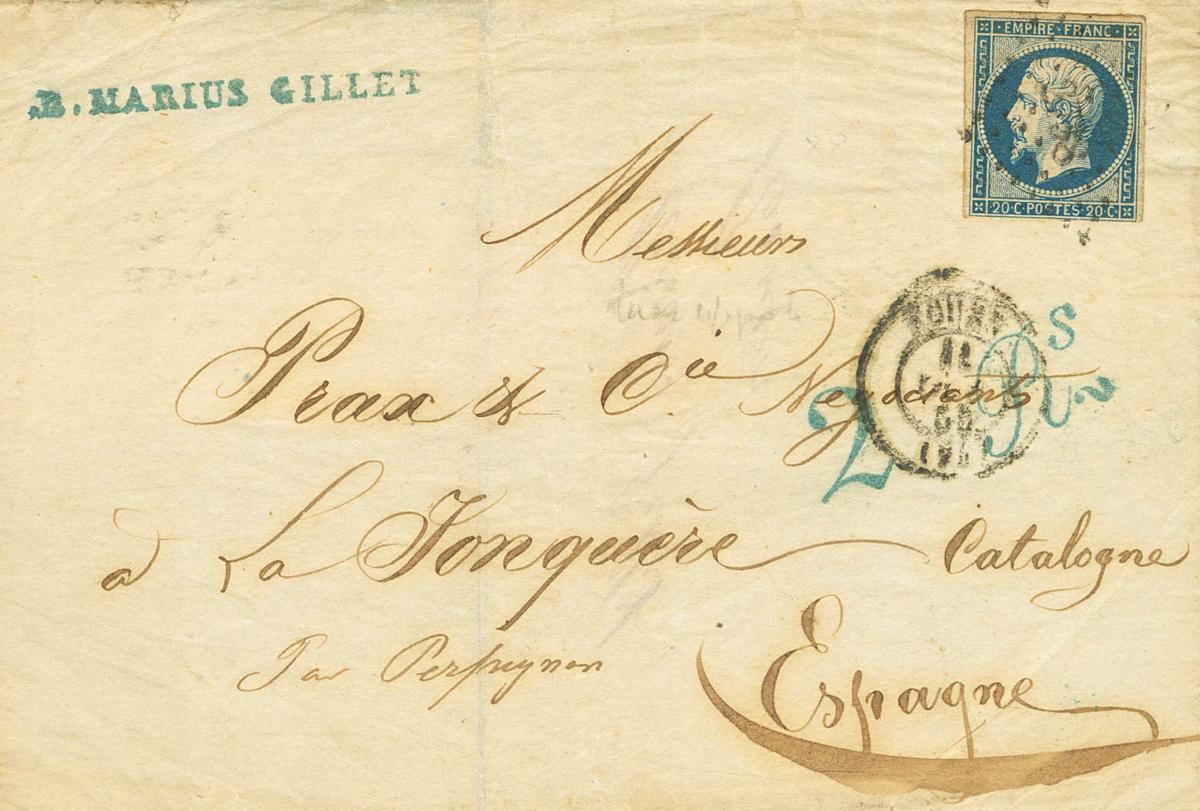 B. MARIUS GILLET
EMPIRE · FRANC ·
20 · C · POSTES · 20 · C
Messieurs
Prax & Cie Negociants
2 Rs
à La Jonquère Catalogne
Par Perpignan
Espagne